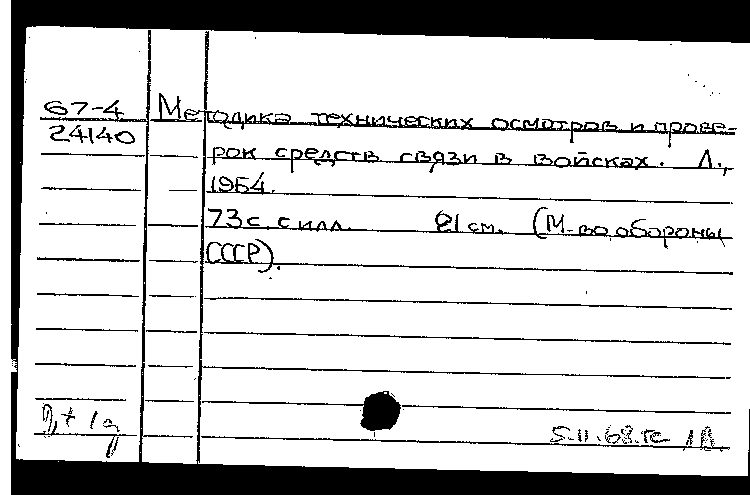 67-4
24140
Методика технических осмотров и прове-
рок средств связи в войсках. Л.,
1964.
73 с. с илл. 21 см. (М-во обороны
СССР).
5.11.68.